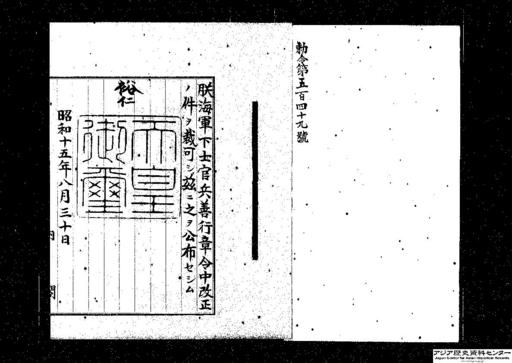 勅令第五百四十九號
朕海軍下士官兵善行章令中改正
ノ件ヲ裁可シ茲ニ之ヲ公布セシム
裕仁
天皇御璽
昭和十五年八月三十日
内閣
アジア歴史資料センター
Japan Center for Asian Historical Records